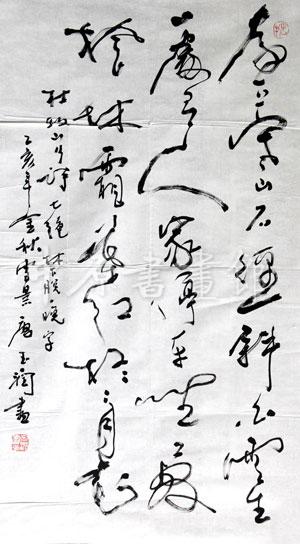 遠上寒山石徑斜白雲生
處有人家停車坐愛
楓林霜葉紅於二月花
杜牧山行詩七絕 林下脫晚字
乙亥年金秋景唐玉潤書
書畫